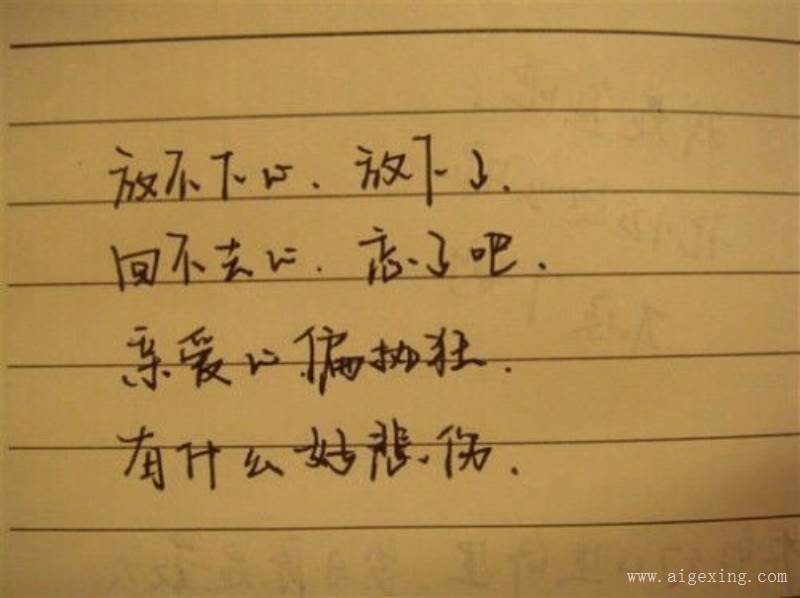 放不下的.放下了.
回不去的.忘了吧.
亲爱的偏执狂.
有什么好悲伤.
www.aigexing.com